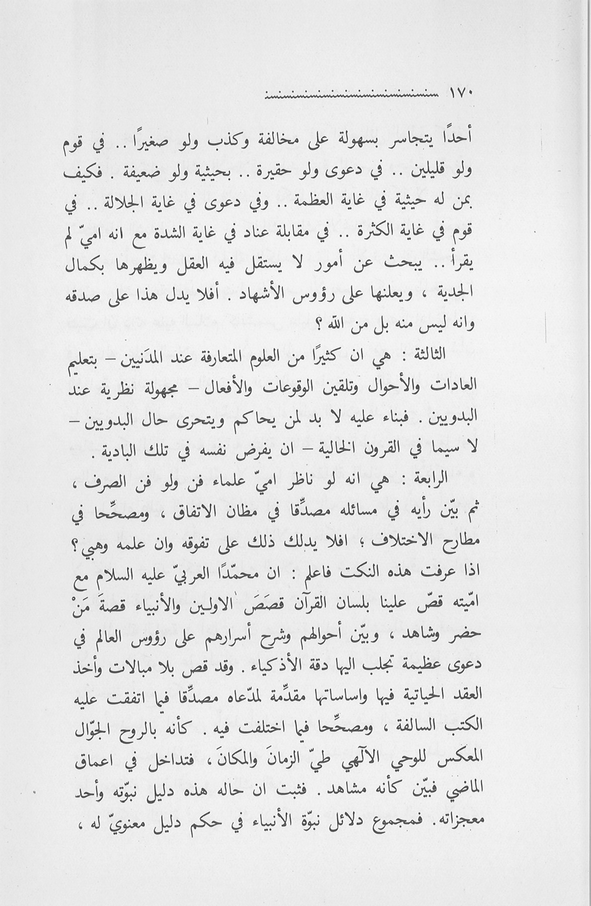 ١٧٠
أحدًا يتجاسر بسهولة على مخالفة وكذب ولو صغيرًا .. في قوم
ولو قليلين .. في دعوى ولو حقيرة .. بحيثية ولو ضعيفة . فكيف
بمن له حيثية في غاية العظمة .. وفي دعوى في غاية الجلالة .. في
قوم في غاية الكثرة .. في مقابلة عناد في غاية الشدة مع انه اميّ لم
يقرأ .. يبحث عن أمور لا يستقل فيه العقل ويظهرها بكمال
الجدية ، ويعلنها على رؤوس الأشهاد . أفلا يدل هذا على صدقه
وانه ليس منه بل من الله ؟
الثالثة : هي ان كثيرًا من العلوم المتعارفة عند المدَنيين – بتعليم
العادات والأحوال وتلقين الوقوعات والأفعال – مجهولة نظرية عند
البدويين . فبناء عليه لا بد لمن يحاكم ويتحرى حال البدويين –
لا سيما في القرون الخالية – ان يفرض نفسه في تلك البادية .
الرابعة : هي انه لو ناظر اميّ علماء فن ولو فن الصرف ،
ثم بيّن رأيه في مسائله مصدِّقا في مظان الاتفاق ، ومصحِّحا في
مطارح الاختلاف ؛ افلا يدلك ذلك على تفوقه وان علمه وهبي ؟
اذا عرفت هذه النكت فاعلم : ان محمّدًا العربيّ عليه السلام مع
امّيته قصّ علينا بلسان القرآن قصَصَ الاولين والأنبياء قصةَ مَنْ
حضر وشاهد ، وبيّن أحوالهم وشرح أسرارهم على رؤوس العالم في
دعوى عظيمة تجلب اليها دقة الأذكياء . وقد قص بلا مبالات وأخذ
العقد الحياتية فيها واساساتها مقدِّمة لمدّعاه مصدِّقا فيما اتفقت عليه
الكتب السالفة ، ومصحِّحا فيما اختلفت فيه . كأنه بالروح الجوّال
المعكس للوحي الآلهي طيّ الزمانَ والمكانَ ، فتداخل في اعماق
الماضي فبيّن كأنه مشاهد . فثبت ان حاله هذه دليل نبوّته وأحد
معجزاته . فمجموع دلائل نبوّة الأنبياء في حكم دليل معنويّ له ،